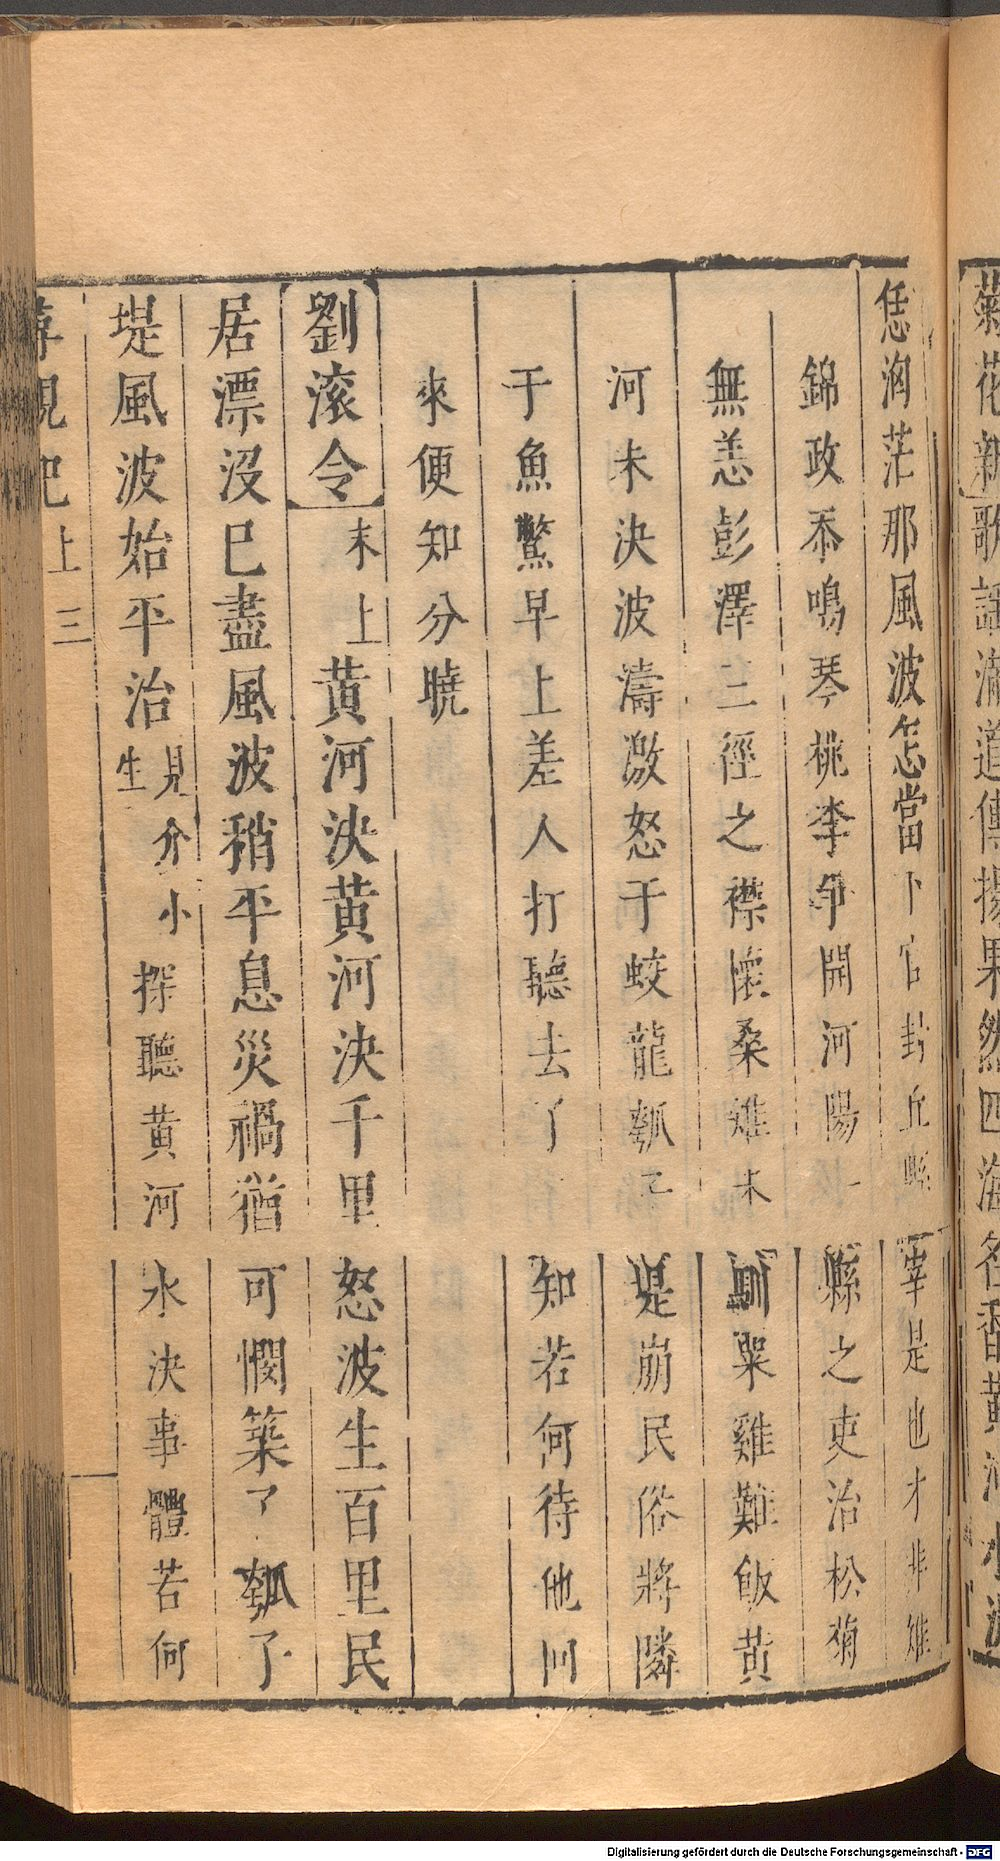 菊花新歌謠滿道傳揚果然四海名香黃河水
恁洶茫那風波怎當下官封丘縣宰是也才非
錦政忝鳴琴桃李爭開河陽一縣之吏治松菊
無恙彭澤三徑之襟懷桑雉未馴粟雞難飯黃
河未決波濤激怒于蛟龍瓠子堤崩民俗將隣
于魚鱉早上差人打聽去了知若何待他回
來便知分曉
劉滚令末上黃河決黃河決千里怒波生百里民
居漂沒已盡風波稍平息災禍猶可憫築了瓠子
堤風波始平治見介小生探聽黃河水決事體若何
上三
Digitalisierung gefördert durch die Deutsche Forschungsgemeinschaft - DFG